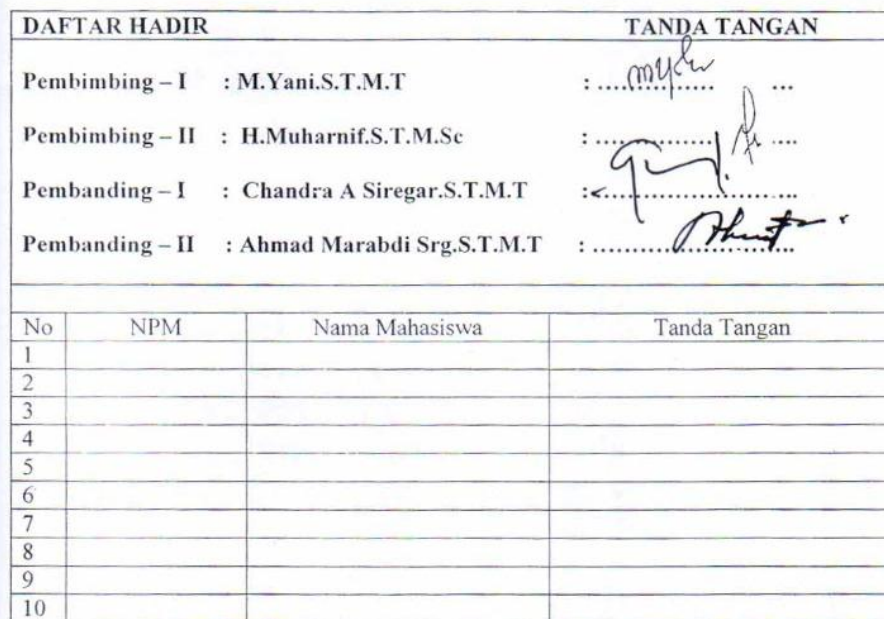 DAFTAR HADIR TANDA TANGAN
Pembimbing – I : M.Yani.S.T.M.T : ................ ...
Pembimbing – II : H.Muharnif.S.T.M.Sc : ................ ....
Pembanding – I : Chandra A Siregar.S.T.M.T : ............................
Pembanding – II : Ahmad Marabdi Srg.S.T.M.T : ............................
No NPM Nama Mahasiswa Tanda Tangan
1
2
3
4
5
6
7
8
9
10